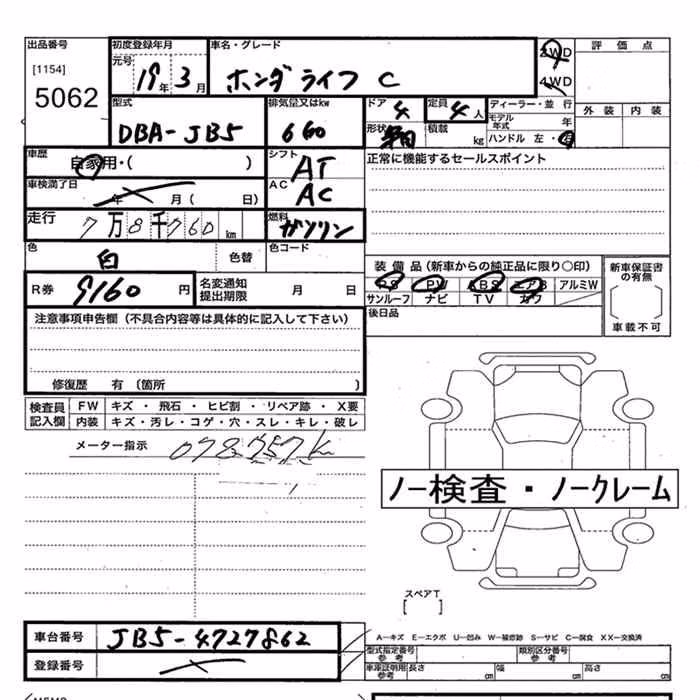 出品番号
[1154]
5062
初度登録年月
元号
19年3月
車名・グレード
ホンダ ライフ C
2WD
4WD
評価点
外装 内装
型式
DBA-JB5
排気量又はkw
660
ドア 4
定員 4人
ディーラー・並行
モデル年式 年
形状
積載 kg
ハンドル 左・右
車歴
自家用・( )
シフト
AT
正常に機能するセールスポイント
車検満了日
年 月( 日)
AC
AC
走行
7万8千760km
燃料
ガソリン
色
白
色替
色コード
装備品(新車からの純正品に限り○印)
PS PW ABS エアB アルミW
サンルーフ ナビ TV カワ
新車保証書の有無
車載不可
R券
9160円
名変通知
提出期限
月 日
後日品
注意事項申告欄(不具合内容等は具体的に記入して下さい)
修復歴 有〔箇所 〕
検査員記入欄
FW キズ・飛石・ヒビ割・リペア跡・X要
内装 キズ・汚レ・コゲ・穴・スレ・キレ・破レ
メーター指示
078757K
ノー検査・ノークレーム
スペアT
[ ]
車台番号
JB5-4727862
登録番号
A-キズ E-エクボ U-凹み W-補修跡 S-サビ C-腐食 XX-交換済
型式指定番号
参考
類別区分番号
参考
車庫証明用
参考
長さ cm
幅 cm
高さ cm
MEMO